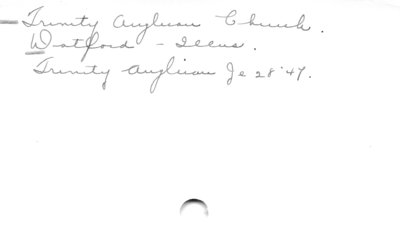 Trinity Anglican Church.
Watford - Illus.
Trinity Anglican Je 28 '47.